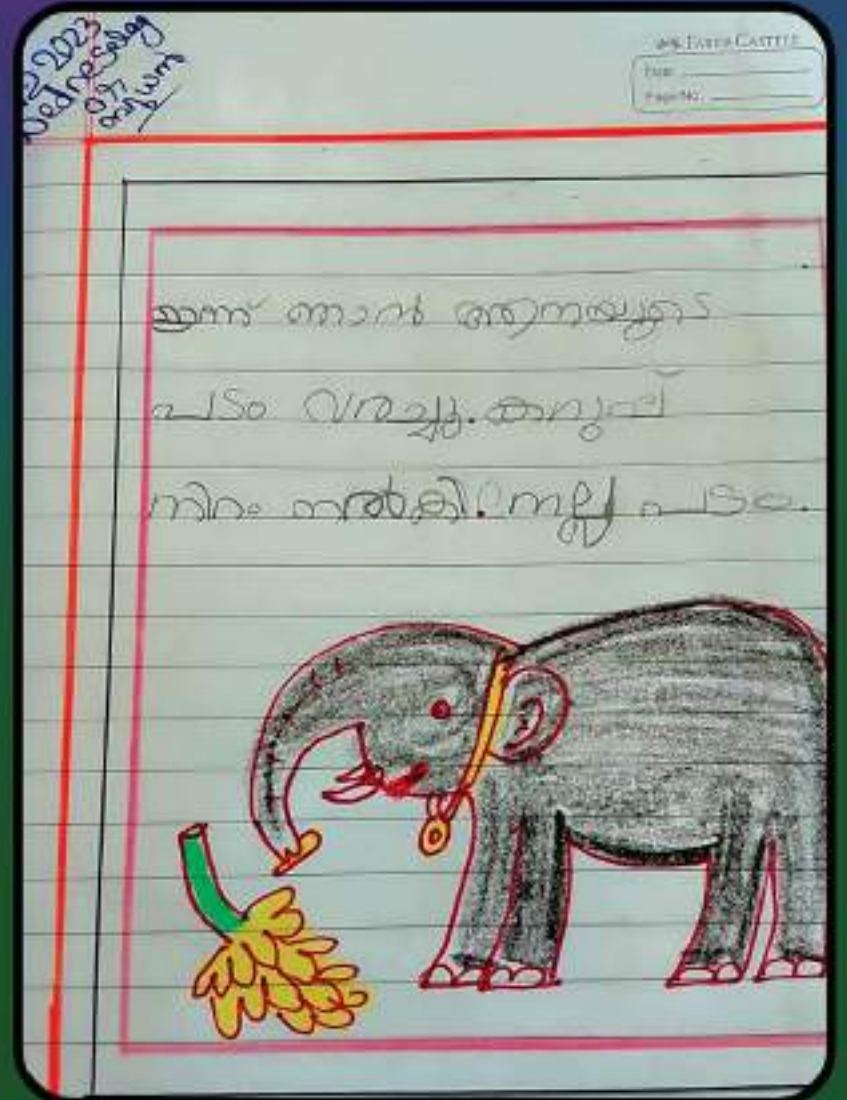 2023
Wednesday
FABER-CASTELL
Date
Page No.
ഇന്ന് ഞാൻ ആനയുടെ
പടം വരച്ചു. കറുപ്പ്
നിറം നൽകി. നല്ല പടം.